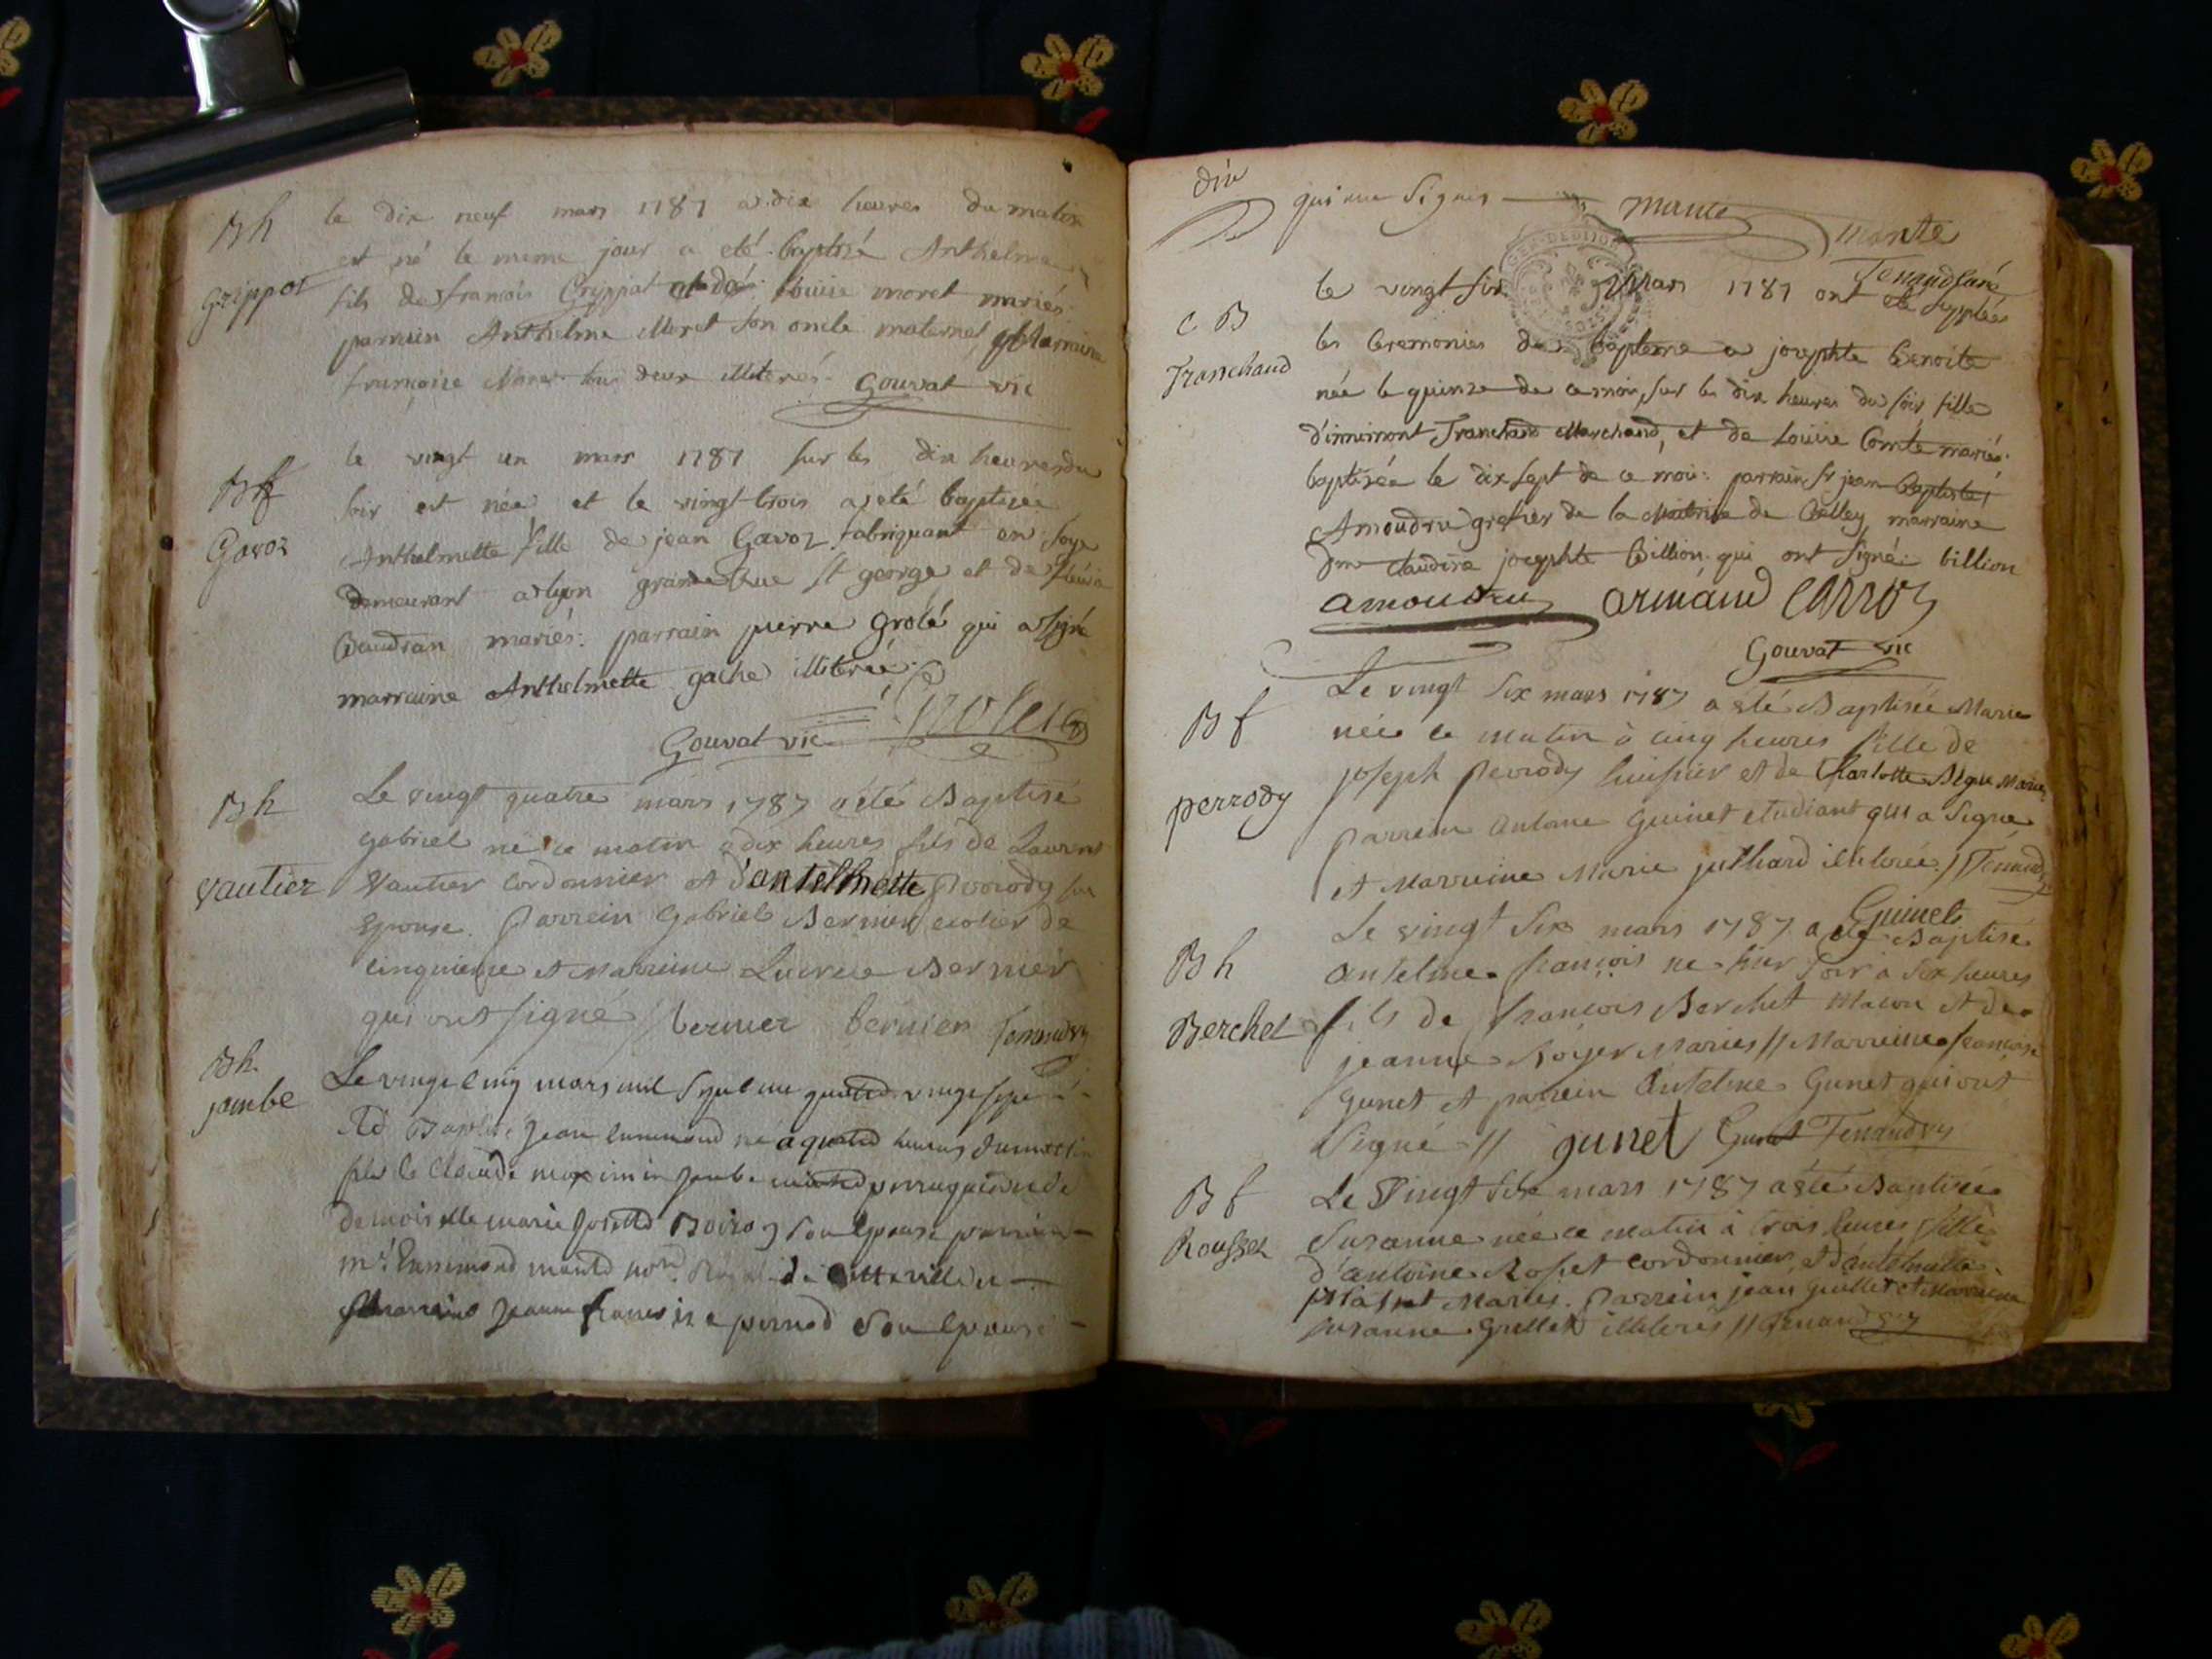 Bh
Grippot
le dix neuf mars 1787 a dix heures du matin
est né le meme jour a eté baptisé Anthelme
fils de francois Grippat et de louise moret mariés
parrain Anthelme Moret son oncle maternel, et Marraine
francoise Moret tous deux illiterés. Gouvat vic
Bf
Gavoz
le vingt un mars 1787 sur les dix heures du
soir est née et le vingt trois a eté baptisée
Anthelmette fille de jean Gavoz fabriquant en soye
demeurant a lyon grande Rue st george et de
Baudran mariés: parrain pierre grolé qui a signé
marraine Anthelmette gache illiterée
Gouvat vic
Bh
Vautier
Le vingt quatre mars 1787 a été Baptisé
gabriel né ce matin a dix heures fils de Laurent
Vautier Cordonnier et d'antelmette Perrody sa
Epouse. Parrein Gabriel Bernier ecolier de
cinquieme et Marreine Lucrece Bernier
qui ont signé // bernier bernier Tenandry
Bh.
jambe
Le vingt cinq mars mil sept cent quatre vingt sept a
été Baptisé jean Ennemond né a quatre heures du matin
fils de Claude maximin jambe perruquier et de
demoiselle marie Boiroz son Epouse parrain
mr. Ennemond de cette ville et
Marraine jeanne francoise son Epouse
div
qui ont Signés Mante
Mante
Tenand curé
C B
Tranchand
le vingt six Mars 1787 ont été supplées
les Ceremonies de bapteme a josephte benoite
née le quinze de ce mois, sur les dix heures du soir fille
d'innimont Tranchand Marchand, et de louise Comte mariés:
baptisée le dix sept de ce mois: parrain sr jean Baptiste
Amoudru grefier de la Maitrise de Belley, marraine
dm Claudine josephte Billion qui ont signé: billion
amoudru armand carroz
Gouvat vic
Bf
perrody
Le vingt six mars 1787 a été Baptisée Marie
née ce matin à cinq heures fille de
joseph Perrody huissier et de Charlotte Mariés
Parrein Antome Guinet etudiant qui a Signé
et Marreine Marie juthard illiterée // Tenandry
Guinet
Bh
Berchet
Le vingt Six mars 1787 a été Baptisé
antelme francois né hier soir à six heures
fils de francois Berchet Macon et de
jeanne Royer Mariés // Marreine francoise
gunet et parrein antelme Gunet qui ont
Signé // gunet Gunet Tenandry
Bf
Rousset
Le Vingt Six mars 1787 a été Baptisée
Suzanne née ce matin à trois heures fille
d'antoine Rosset cordonnier, et d'antelmette
Mariés. Parrein jean guillet et Marreine
suzanne Grellet illiterés // Tenandry